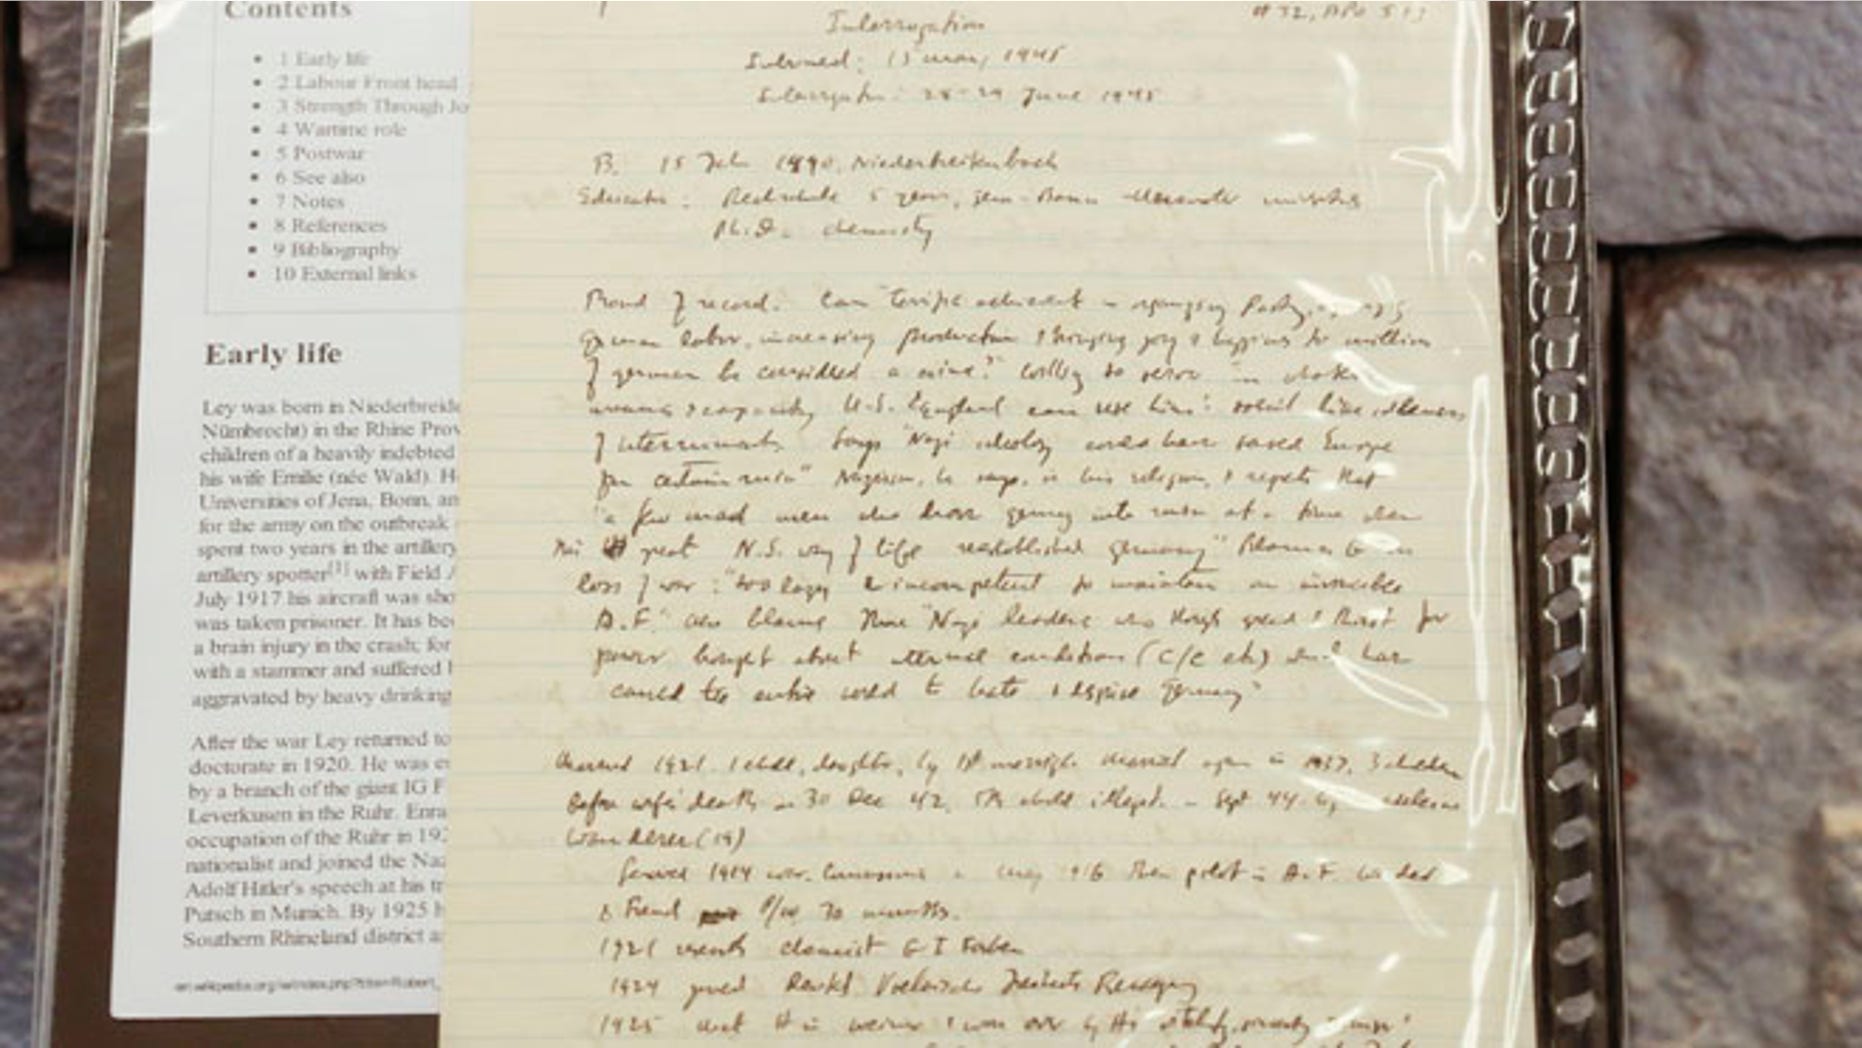 Contents
1 Early life
2 Labour Front head
3 Strength Through Jo
4 Wartime role
5 Postwar
6 See also
7 Notes
8 References
9 Bibliography
10 External links
Early life
Ley was born in Niederbreide
Nümbrecht) in the Rhine Prov
children of a heavily indebted
his wife Emilie (née Wald). H
Universities of Jena, Bonn, an
for the army on the outbreak
spent two years in the artillery
artillery spotter[1] with Field A
July 1917 his aircraft was sho
was taken prisoner. It has bee
a brain injury in the crash; for
with a stammer and suffered
aggravated by heavy drinking
After the war Ley returned to
doctorate in 1920. He was e
by a branch of the giant IG F
Leverkusen in the Ruhr. Enra
occupation of the Ruhr in 192
nationalist and joined the Naz
Adolf Hitler's speech at his tr
Putsch in Munich. By 1925 h
Southern Rhineland district a
Interrogation
Interned: 15 May 1945
Interrogation: 28-29 June 1945
B. 15 Feb 1890, Niederbreitenbach
Education: Realschule 5 years, Jena-Bonn
Ph.D. chemistry
Proud of record. Can "terrific achievement in organizing Party,
German labor, increasing production & bringing joy & happiness to million
of German be considered a crime?" Willing to serve in
capacity U.S. England can use him:
of internment. Says "Nazi ideology could have saved Europe
from certain ruin" Nazism, he says, is his religion, & repeats that
"a few mad men who drove Germany into ruin at a time when
the great N.S. way of life reestablished Germany" Blames
loss of war: "too lazy & incompetent to maintain an invincible
A.F." also blames those "Nazi leaders who through greed & thirst for
power brought about internal conditions (C/C etc) which has
caused the entire world to hate & despise Germany"
Married 1921. 1 child, daughter, by 1st marriage married again in 1937, 3 children
before wife's death in 30 Dec 42. 5th child illegit. - Sept 44 by
Wanderer (19)
Served 1914 war. 1916 then pilot in A.F.
& French P/W 30 months.
1921 chemist G I Farben
1924 joined Deutsch Voelkische Freiheits Bewegung
1925 H in Weimar & won over by H's